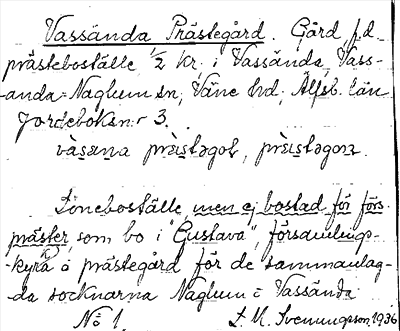 Vassända Prästegård. Gård, f.d.
prästeboställe 1/2 kr. i Vassända, Vass-
-anda-Naglum sn, Väne hd, Älfsb. län
Jordeboken nr 3.
vàsɛna prɛ̀ıstəgoḷ, prɛ̀ıstəgoɲ.
Löneboställe, men ej bostad för förs.
präster som bo i "Gustava", församlings-
-kyrkoprästegård för de sammanlag-
-da socknarna Naglum o Vassända
No 1. L. M. Svenungsson 1936